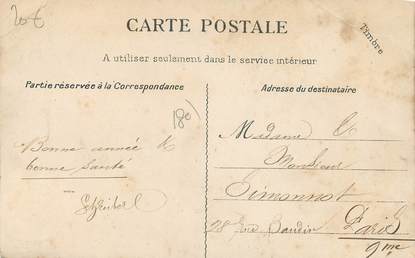 20€
CARTE POSTALE
Timbre
A utiliser seulement dans le service intérieur
Partie réservée à la Correspondance
Adresse du destinataire
180
Bonne année &
bonne santé
Madame &
Monsieur
Simonnot
28 Rue Baudin Paris
9me